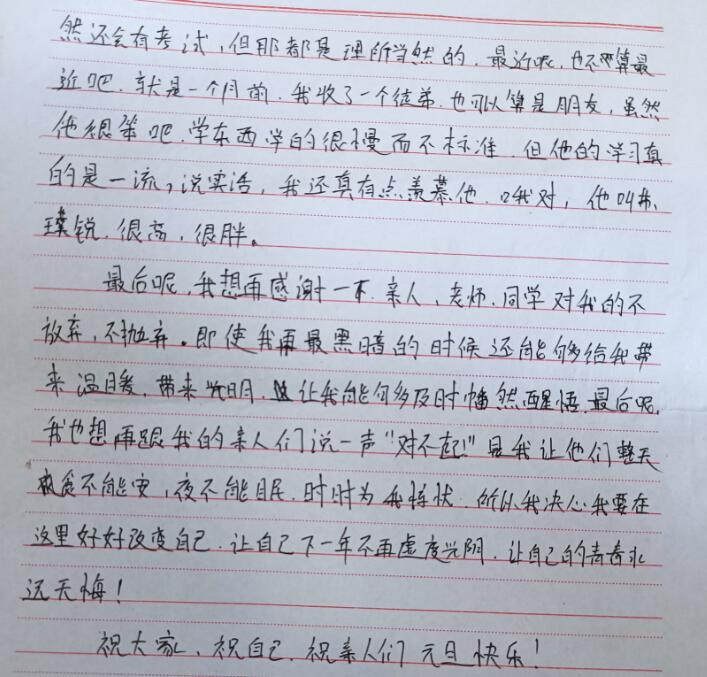 然还会有考试，但那都是理所当然的，最近呢，也不算最
近吧，就是一个月前，我收了一个徒弟，也可以算是朋友，虽然
他很笨吧，学东西学的很慢而不标准，但他的学习真
的是一流，说实话，我还真有点羡慕他，对，他叫
璞锐，很高，很胖。
最后呢，我想再感谢一下亲人、老师、同学对我的不
放弃，不抛弃。即使我再最黑暗的时候还能够给我带
来温暖，带来光明，让我能够及时幡然醒悟，最后呢，
我也想再跟我的亲人们说一声“对不起！”是我让他们整天
食不能安，夜不能眠，时时为我，所以我决心我要在
这里好好改变自己，让自己下一年不再虚度光阴，让自己的青春永
远无悔！
祝大家、祝自己、祝亲人们元旦快乐！